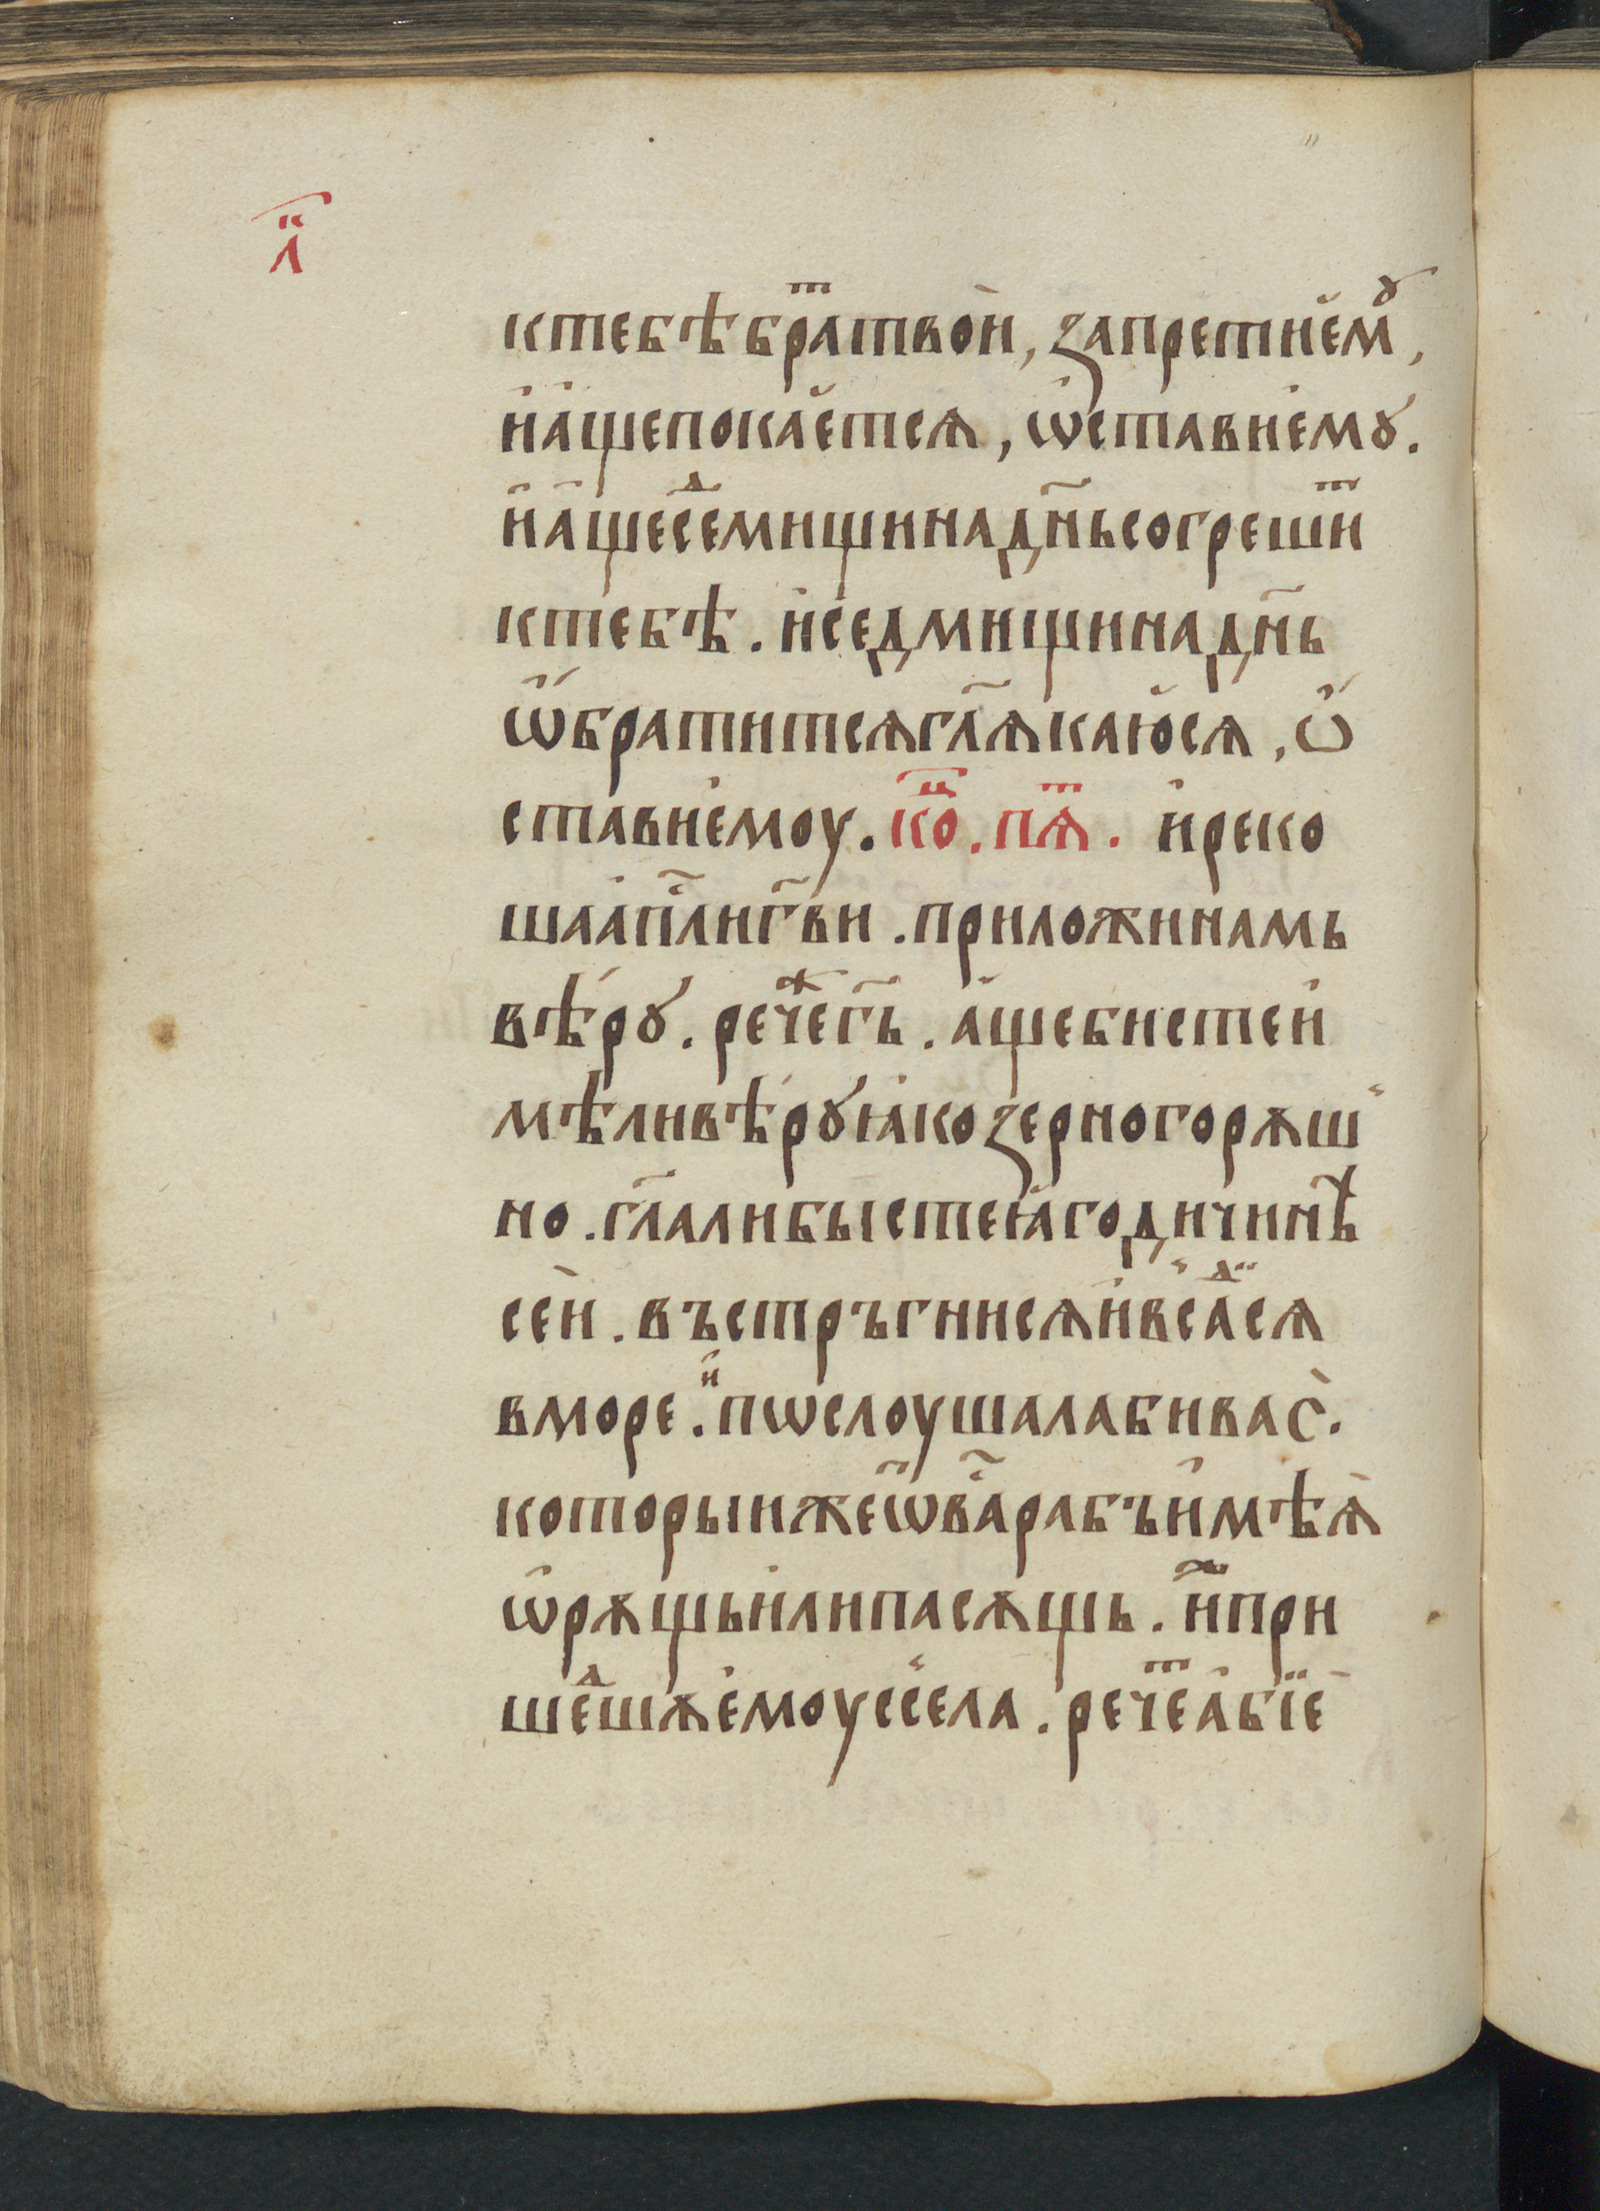 л҃
ктебѣбра́ⷮтвоѝ, запретиему̾,
иащепокаетсѧ, ѡставиемꙋ.
иащесеⷣмищинадн҃ьсогрешиⷮ
ктебѣ. иседмищинадн҃ь
ѡбратитсѧгл҃ѧкаюсѧ, ѡ
ставиемоу. коⷰ. пѧⷮ. иреко
шаапⷭ҇лигв҃и. приложинамь
вѣ́рꙋ. речеⷤгь҃. ащебистеи
мѣливѣ́рꙋꙗкозерногорѫш
но. гл҃алибыстеꙗгодичинѣ
сеѝ. въстръгнисѧивсаⷣсѧ
вморе. и пѡслоушалабивас̀.
которыижеѿва́ⷭрабъимѣѧ̀
ѡрѫщьилипасѫщь. ипри
шеⷣшѫемоуссела. речеⷮабїе